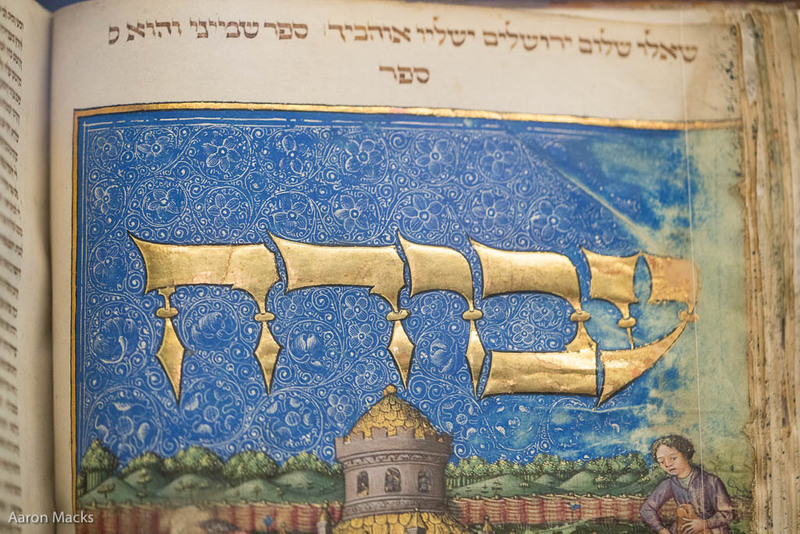 שאלו שלום ירושלים ישליו אוהביך ספר שמיני והוא ס
ספר
עבודה
Aaron Macks